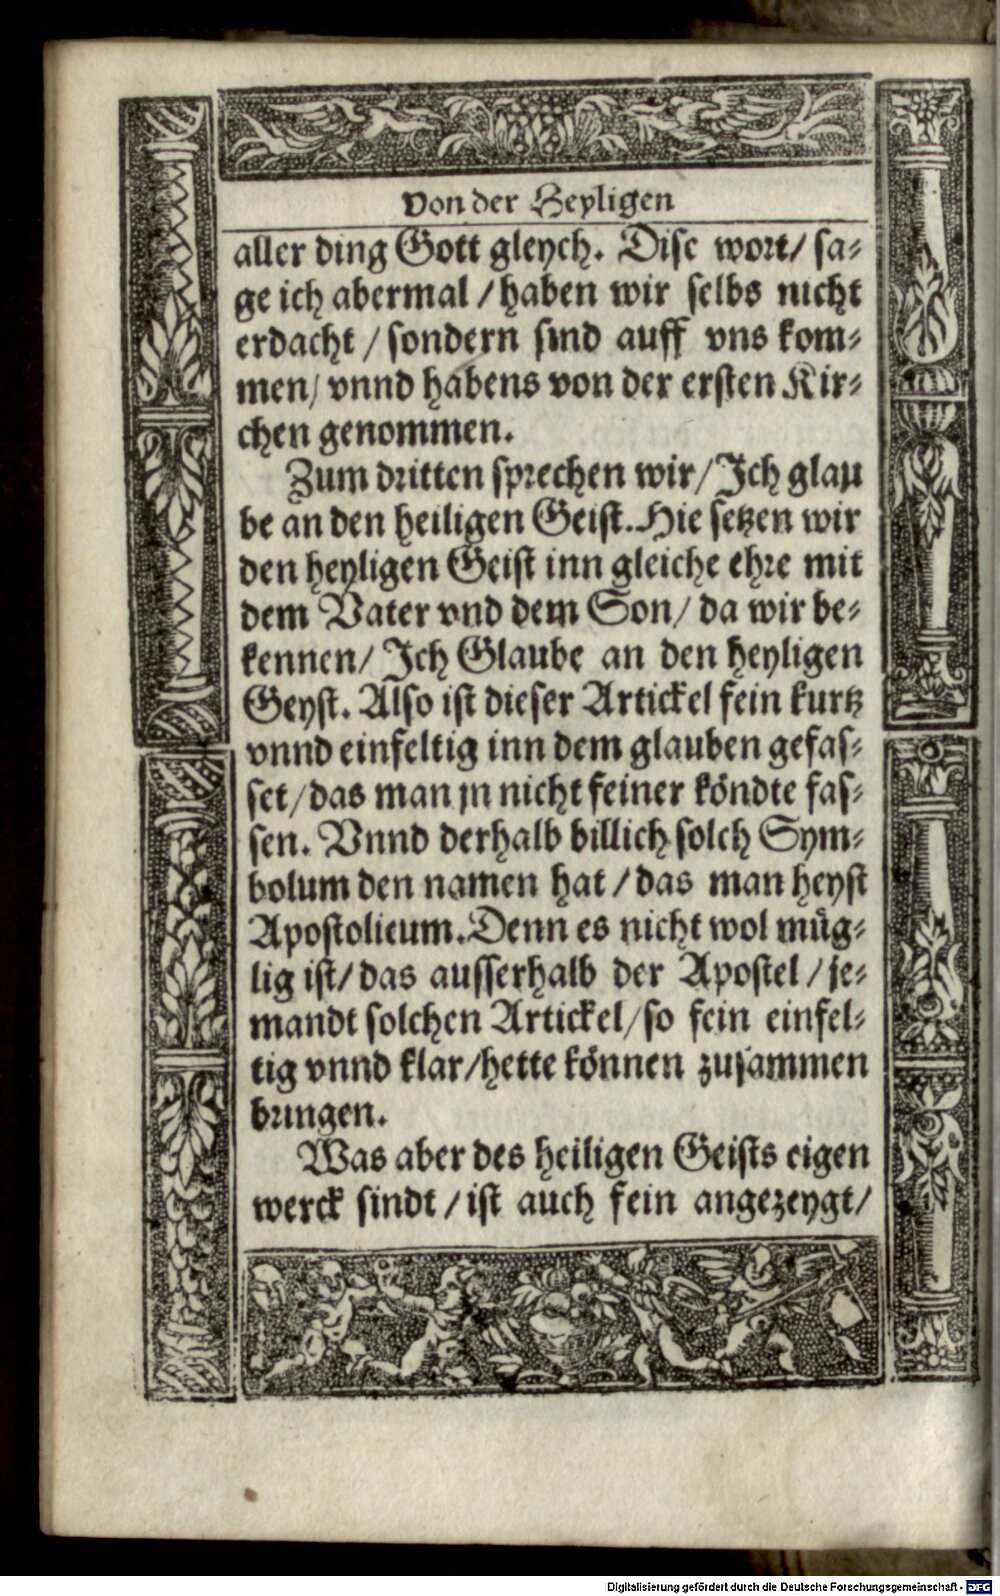 Von der Heyligen
aller ding Gott gleych. Dise wort/ sa⸗
ge ich abermal / haben wir selbs nicht
erdacht / sondern sind auff vns kom⸗
men/ vnnd habens von der ersten Kir⸗
chen genommen.
Zum dritten sprechen wir/ Ich glau
be an den heiligen Geist. Hie setzen wir
den heyligen Geist inn gleiche ehre mit
dem Vater vnd dem Son/ da wir be⸗
kennen/ Ich Glaube an den heyligen
Geyst. Also ist dieser Artickel fein kurtz
vnnd einfeltig inn dem glauben gefas⸗
set/ das man jn nicht feiner köndte fas⸗
sen. Vnnd derhalb billich solch Sym⸗
bolum den namen hat / das man heyst
Apostolicum. Denn es nicht wol müg⸗
lig ist/ das ausserhalb der Apostel / je⸗
mandt solchen Artickel/ so fein einfel⸗
tig vnnd klar/ hette können zusammen
bringen.
Was aber des heiligen Geists eigen
werck sindt / ist auch fein angezeygt/
Digitalisierung gefördert durch die Deutsche Forschungsgemeinschaft - DFG